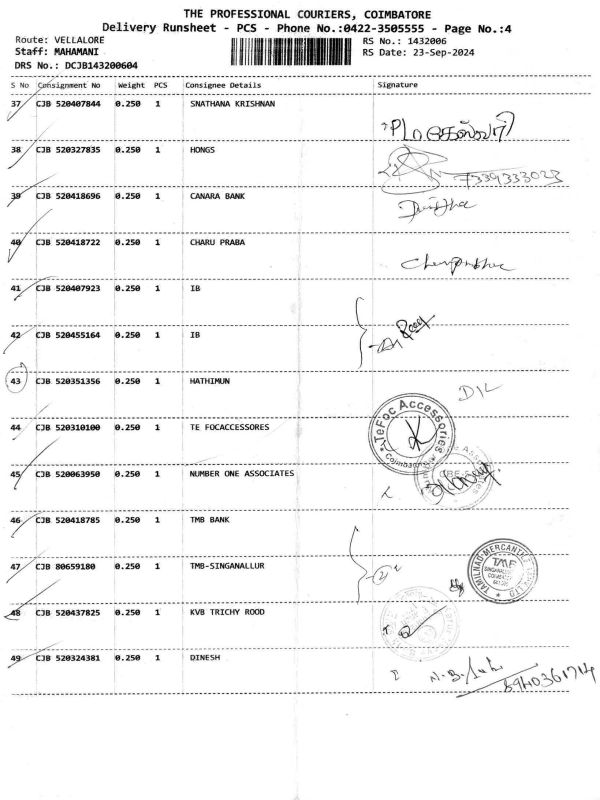 THE PROFESSIONAL COURIERS, COIMBATORE
Delivery Runsheet - PCS - Phone No.:0422-3505555 - Page No.:4
Route: VELLALORE RS No.: 1432006
Staff: MAHAMANI RS Date: 23-Sep-2024
DRS No.: DCJB143200604
S No Consignment No Weight PCS Consignee Details Signature
37 CJB 520407844 0.250 1 SNATHANA KRISHNAN
38 CJB 520327835 0.250 1 HONGS
7339333023
39 CJB 520418696 0.250 1 CANARA BANK
40 CJB 520418722 0.250 1 CHARU PRABA
41 CJB 520407923 0.250 1 IB
42 CJB 520455164 0.250 1 IB
43 CJB 520351356 0.250 1 HATHIMUN
D/L
44 CJB 520310100 0.250 1 TE FOCACCESSORES
TeFoc Accessories
Coimbatore
45 CJB 520063950 0.250 1 NUMBER ONE ASSOCIATES
46 CJB 520418785 0.250 1 TMB BANK
47 CJB 80659180 0.250 1 TMB-SINGANALLUR
2
TAMILNAD MERCANTILE
48 CJB 520437825 0.250 1 KVB TRICHY ROOD
49 CJB 520324381 0.250 1 DINESH
8940361714